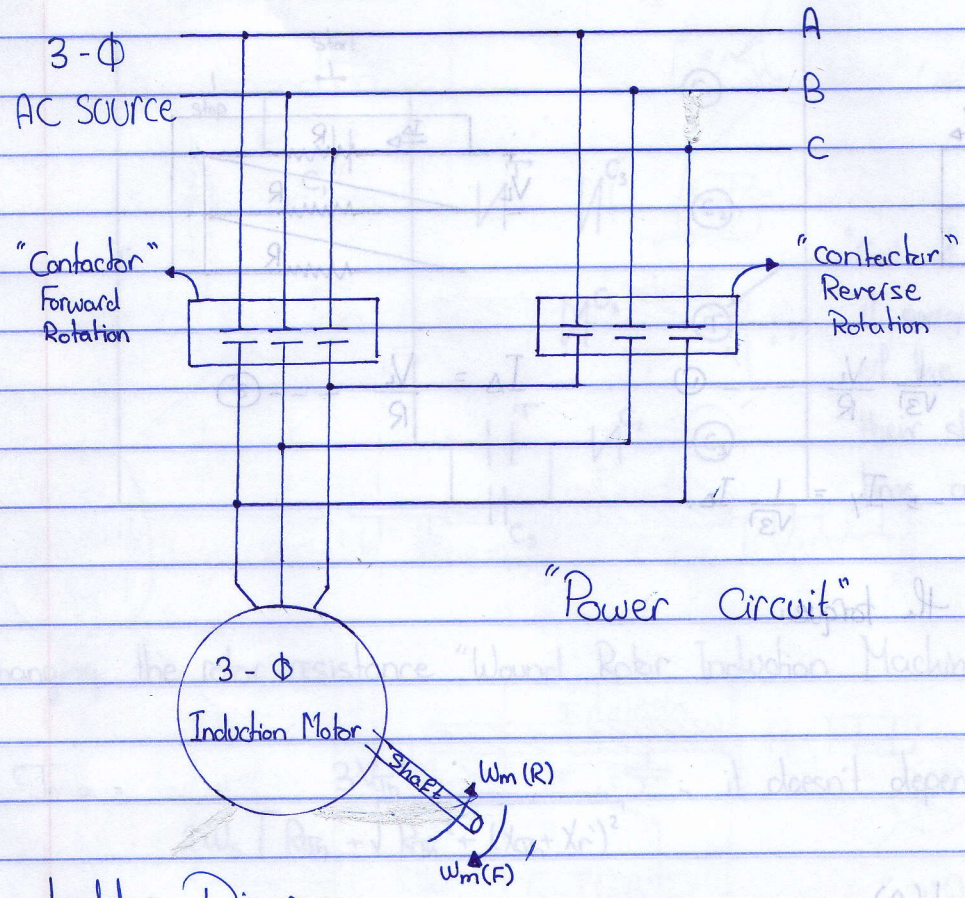 A
3-Φ
B
AC Source
C
"Contactor"
Forward
Rotation
"contactor"
Reverse
Rotation
"Power Circuit"
3-Φ
Induction Motor
Shaft
Wm (R)
Wm(F)